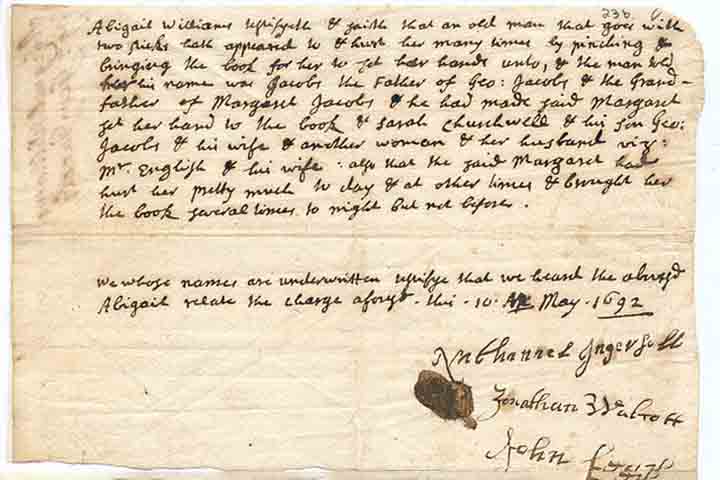 236
Abigail Williams testifyeth & saith that an old man that goes with
two sticks hath appeared to & hurt her many times by pinching &
bringing the book for her to set her hands unto, & the man told
her his name was Jacobs the Father of Geo: Jacobs & the Grand-
father of Margaret Jacobs & he had made said Margaret
set her hand to the book & Sarah Churchwell & his son Geo:
Jacobs & his wife & another woman & her husband viz:
Mr. English & his wife: also that the said Margaret had
hurt her pretty much to day & at other times & brought her
the book several times to night but not before.
We whose names are underwritten testifye that we heard the abovesd
Abigail relate the charge aforesd. this - 10. May - 1692
Nathanael Ingersoll
Jonathan Walcott
John